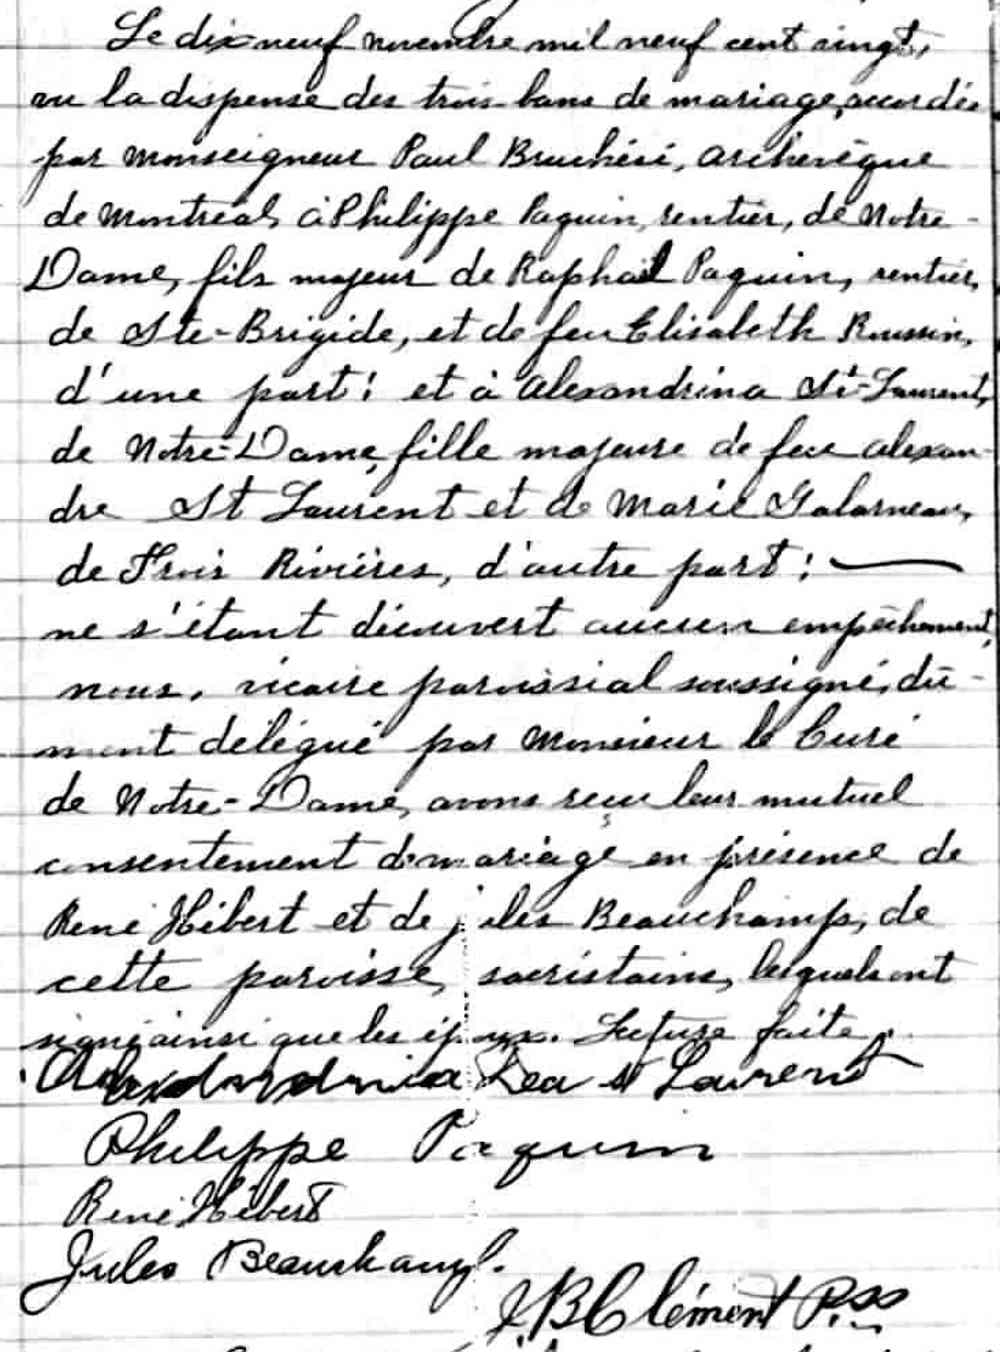 Le dix neuf novembre mil neuf cent vingt,
vu la dispense des trois bans de mariage, accordée
par Monseigneur Paul Bruchési, archevêque
de Montréal, à Philippe Paquin, rentier, de Notre-
Dame, fils majeur de Raphaël Paquin, rentier,
de Ste-Brigide, et de feu Elisabeth Roussin,
d'une part; et à Alexandrina St-Laurent,
de Notre-Dame, fille majeure de feu Alexan-
dre St Laurent et de Marie Galarneau,
de Trois Rivières, d'autre part;
ne s'étant découvert aucun empêchement,
nous, vicaire paroissial soussigné, dû-
ment délégué par Monsieur le Curé
de Notre-Dame, avons reçu leur mutuel
consentement de mariage en présence de
René Hébert et de Jules Beauchamp, de
cette paroisse, sacristains, lesquels ont
signé ainsi que les époux. Lecture faite.
Lea St Laurent
Philippe Paquin
René Hébert
Jules Beauchamp.
J.B Clément P.ss